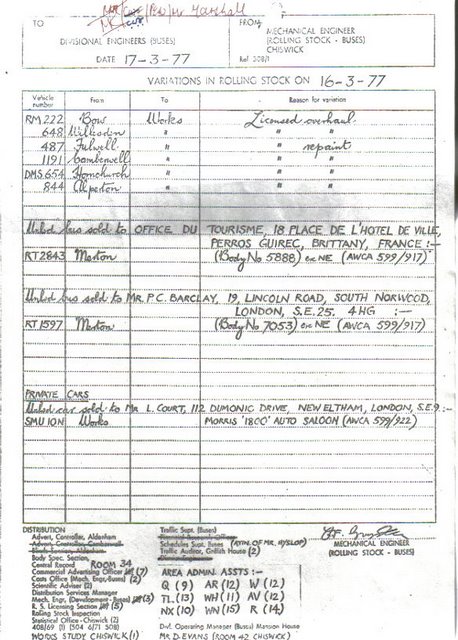 (Pso) Mr Marshall
TO
FROM
DIVISIONAL ENGINEERS (BUSES)
MECHANICAL ENGINEER
(ROLLING STOCK - BUSES)
CHISWICK
DATE 17-3-77
Ref 508/1
VARIATIONS IN ROLLING STOCK ON 16-3-77
Vehicle number From To Reason for variation
RM 222 Bow Works Licensed overhaul
648 Willesden " " "
487 Fulwell " " repaint
1191 Camberwell " " "
DMS.654 Hornchurch " " "
844 Alperton " " "
Unlicd bus sold to OFFICE DU TOURISME, 18 PLACE DE L'HOTEL DE VILLE,
PERROS GUIREC, BRITTANY, FRANCE :-
RT2843 Merton (Body No 5888) ex NE (AWCA 599/917)
Unlicd bus sold to MR. P.C. BARCLAY, 19, LINCOLN ROAD, SOUTH NORWOOD,
LONDON, S.E. 25. 4HG :-
RT1597 Merton (Body No 7053) ex NE (AWCA 599/917)
PRIVATE CARS
Unlicd car sold to MR L. COURT, 112 DUMONIC DRIVE, NEW ELTHAM, LONDON, S.E.9 :-
SMU 10N Works MORRIS '1800' AUTO SALOON (AWCA 599/922)
DISTRIBUTION
Advert. Controller, Aldenham
Advert. Controller, Camberwell
Body Spec. Section.
Central Record ROOM 34
Commercial Advertising Officer (7)
Costs Office (Mech. Engr.-Buses) (2)
Scientific Adviser (2)
Distribution Services Manager
Mech. Engr. (Development - Buses) (3)
R. S. Licensing Section (5)
Rolling Stock Inspection
Statistical Office - Chiswick (2)
408/69 (1) 504 6/71 508
WORKS STUDY CHISWICK (1)
Traffic Supt. (Buses)
Financial Research Officer
Schedules Supt. Buses (ATTN. OF MR. HYSLOP)
Traffic Auditor, Griffith House (2)
AREA ADMIN. ASSTS :-
Q (9) AR (12) W (12)
TL (13) WH (11) AV (12)
NX (10) WN (15) R (14)
Divl. Operating Manager (Buses) Mansion House
MR D. EVANS (ROOM 42 CHISWICK)
MECHANICAL ENGINEER
(ROLLING STOCK - BUSES)